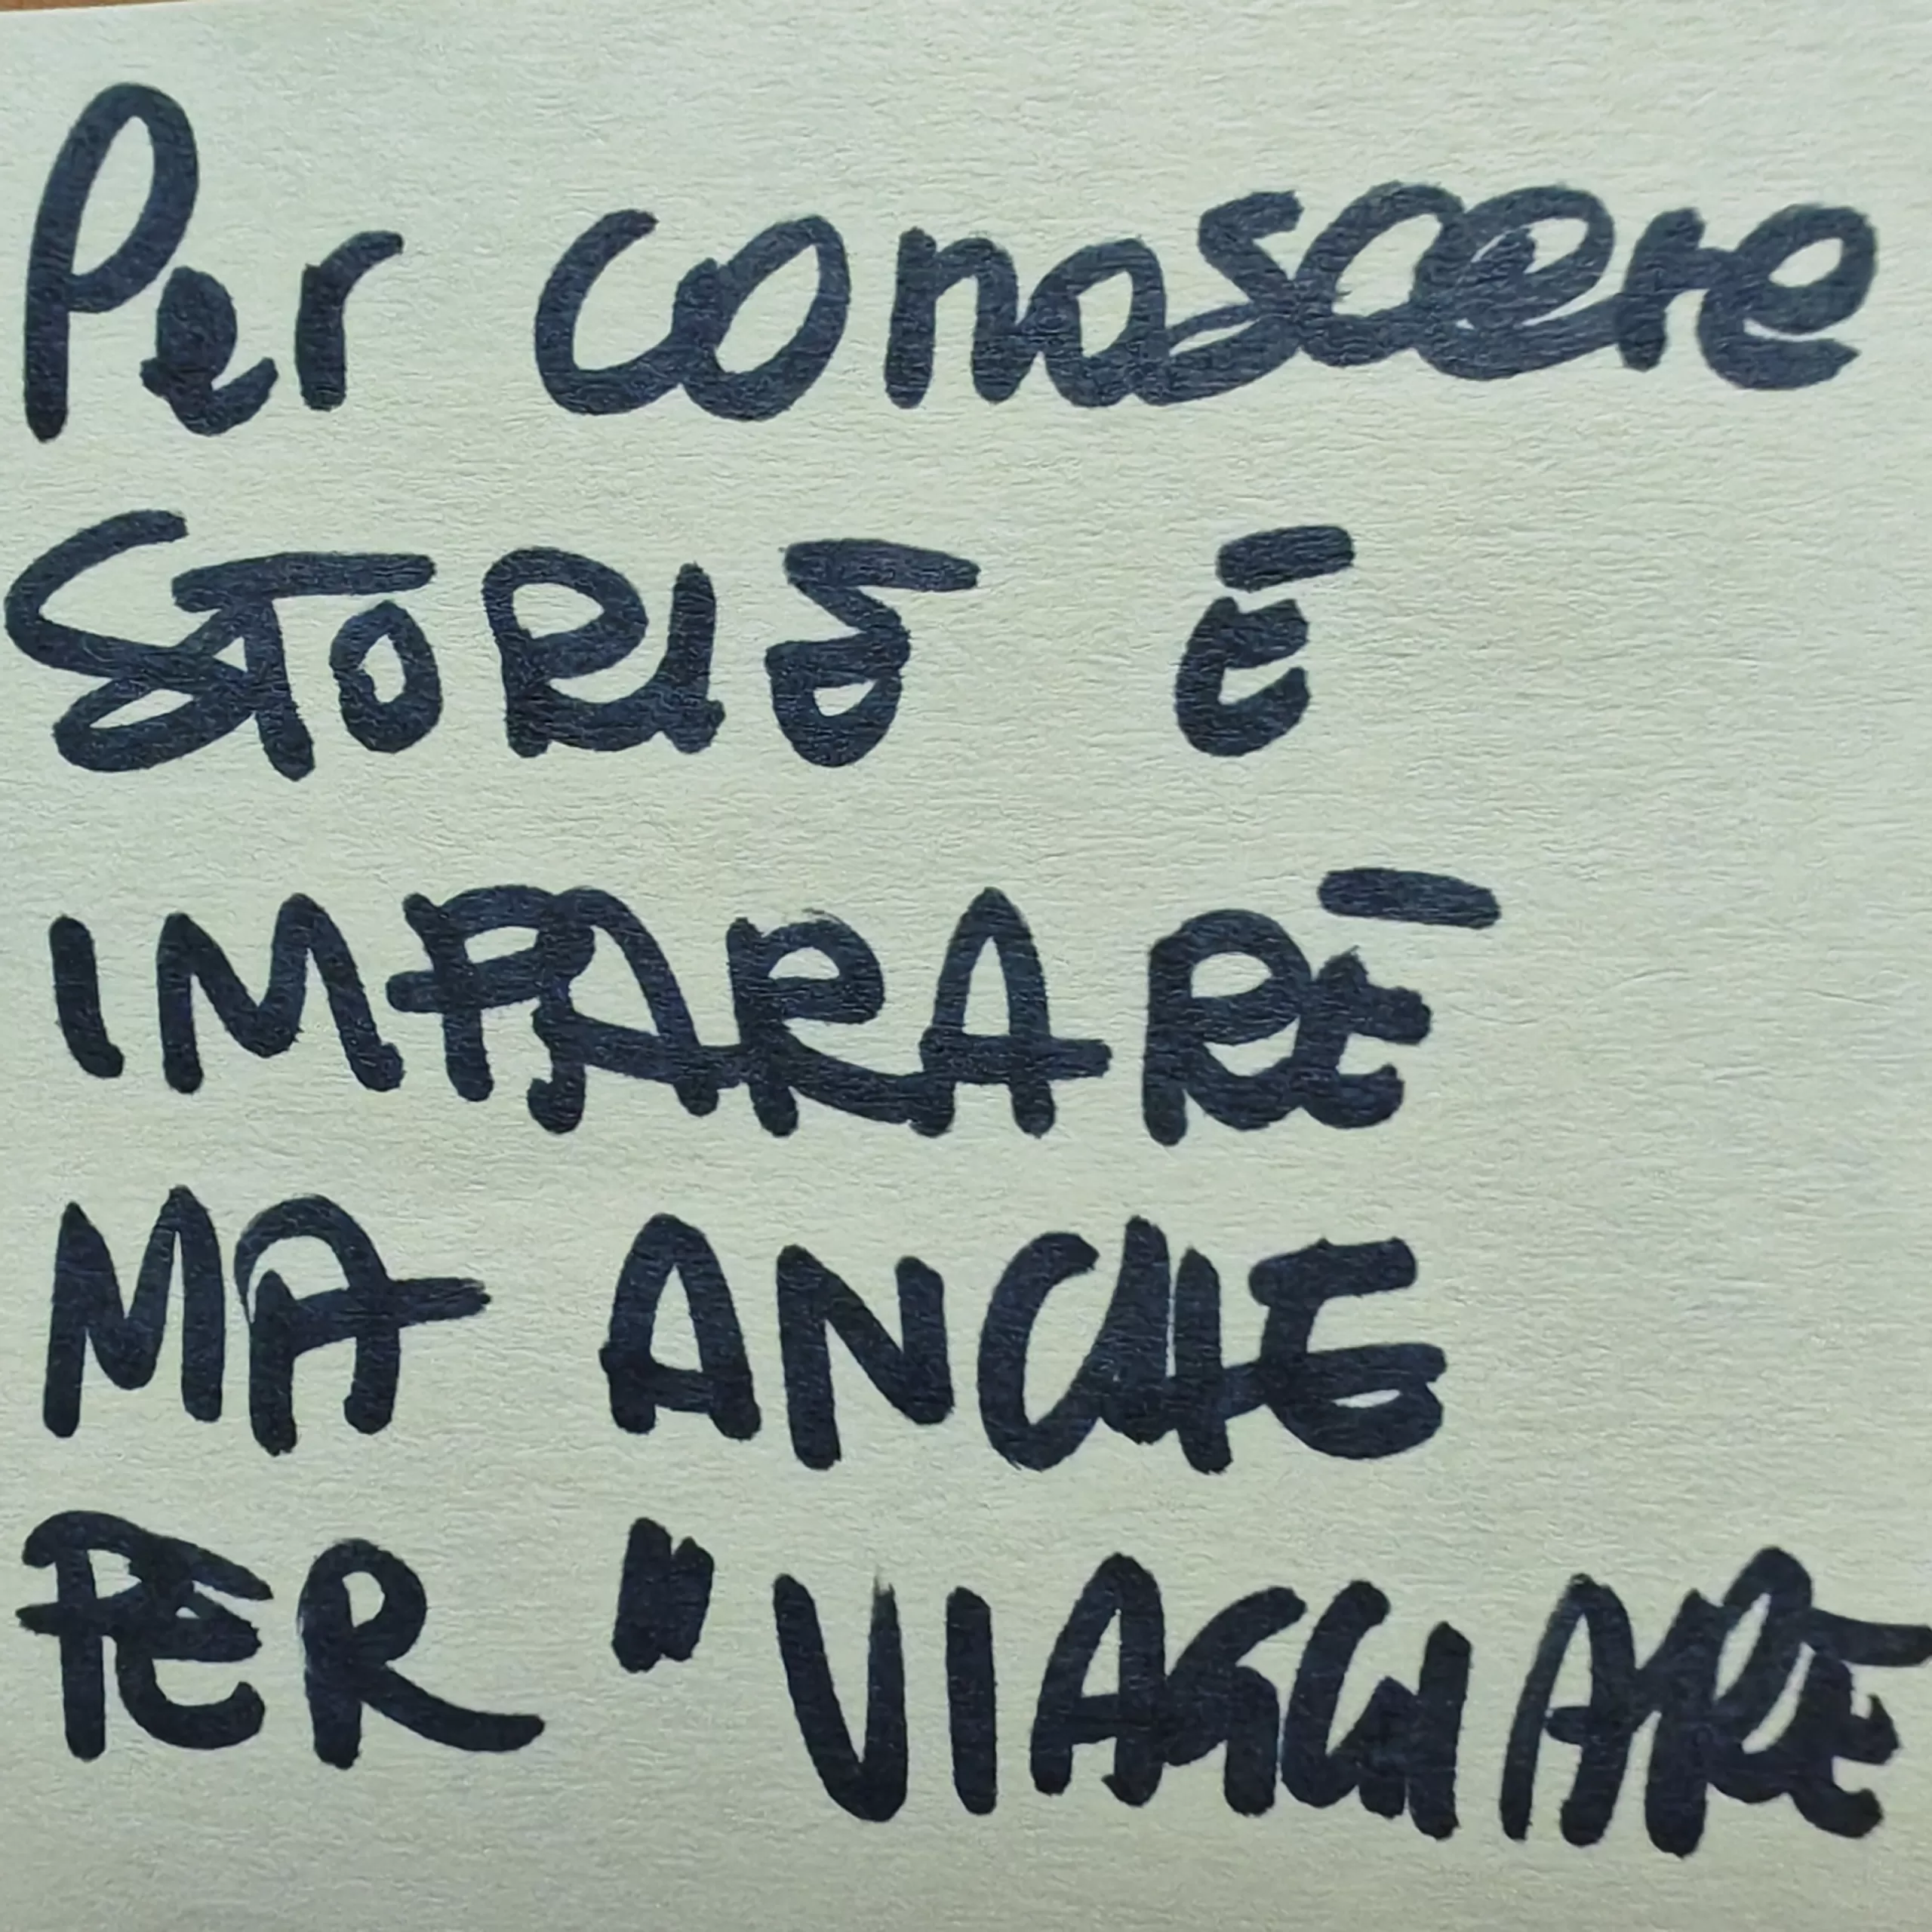 Per conoscere
STORIE E
IMPARARE
MA ANCHE
PER "VIAGGIARE